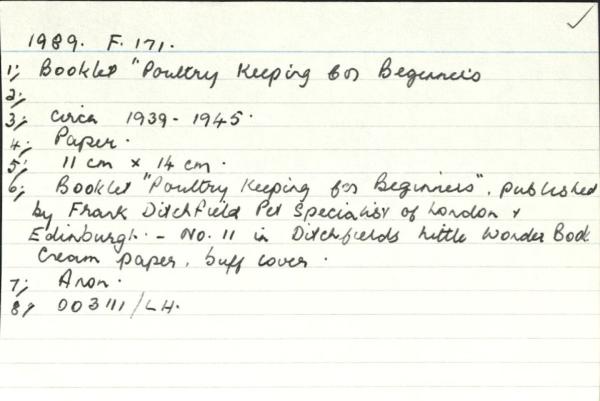 1989. F. 171.
1; Booklet "Poultry Keeping for Beginners
2;
3; circa 1939-1945.
4; Paper.
5; 11 cm x 14 cm.
6; Booklet "Poultry Keeping for Beginners". published
by Frank Ditchfield Pet Specialist of London &
Edinburgh. - No. 11 in Ditchfields Little Wonder Book
Cream paper, buff cover.
7; Anon.
8; 003111/LH.